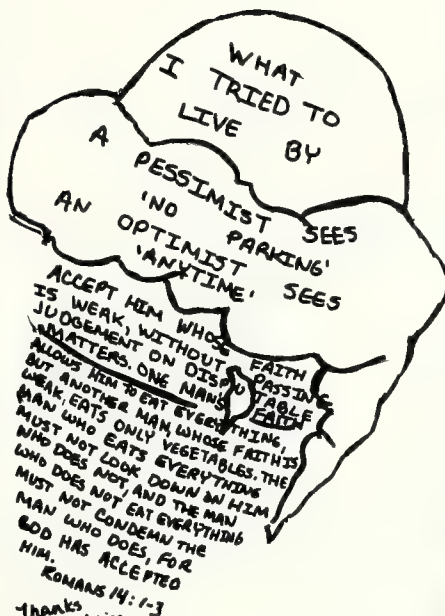 WHAT
I TRIED TO
LIVE BY
A PESSIMIST SEES
'NO PARKING'
AN OPTIMIST SEES
'ANYTIME.'
ACCEPT HIM WHOSE FAITH
IS WEAK, WITHOUT PASSING
JUDGEMENT ON DISPUTABLE
MATTERS. ONE MANS FAITH
ALLOWS HIM TO EAT EVERYTHING,
BUT ANOTHER MAN, WHOSE FAITH IS
WEAK, EATS ONLY VEGETABLES. THE
MAN WHO EATS EVERYTHING
MUST NOT LOOK DOWN ON HIM
WHO DOES NOT, AND THE MAN
WHO DOES NOT EAT EVERYTHING
MUST NOT CONDEMN THE
MAN WHO DOES, FOR
GOD HAS ACCEPTED
HIM.
ROMANS 14:1-3
Thanks,